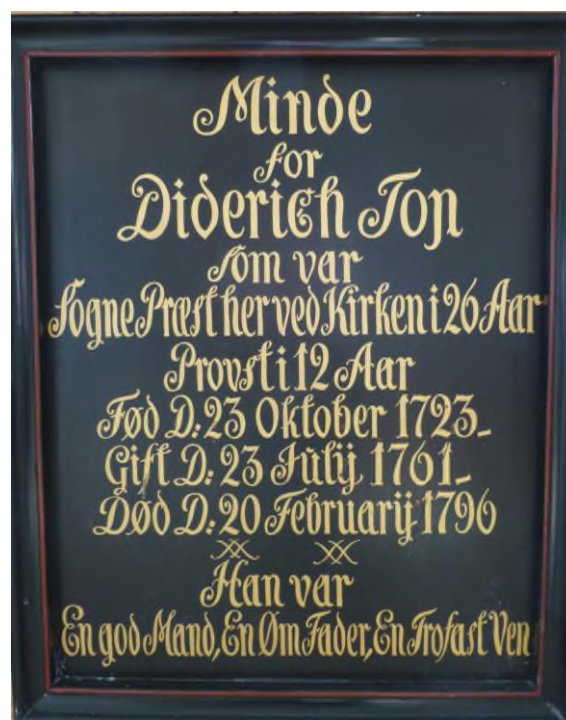 Minde
for
Diderich Top
som var
Sogne Præst her ved Kirken i 26 Aar
Provst i 12 Aar
Fød D: 23 Oktober 1723-
Gift D: 23 Julij 1761-
Død D: 20 Februarij 1796
Han var
En god Mand, En Øm Fader, En Trofast Ven